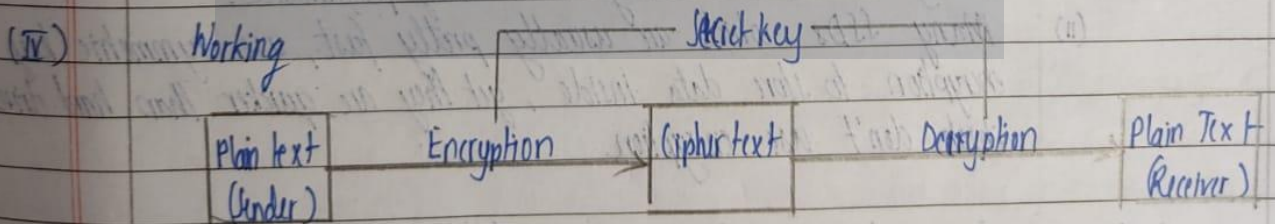 (IV) Working Secret key
Plain text Encryption Ciphertext Decryption Plain Text
(Sender) (Receiver)